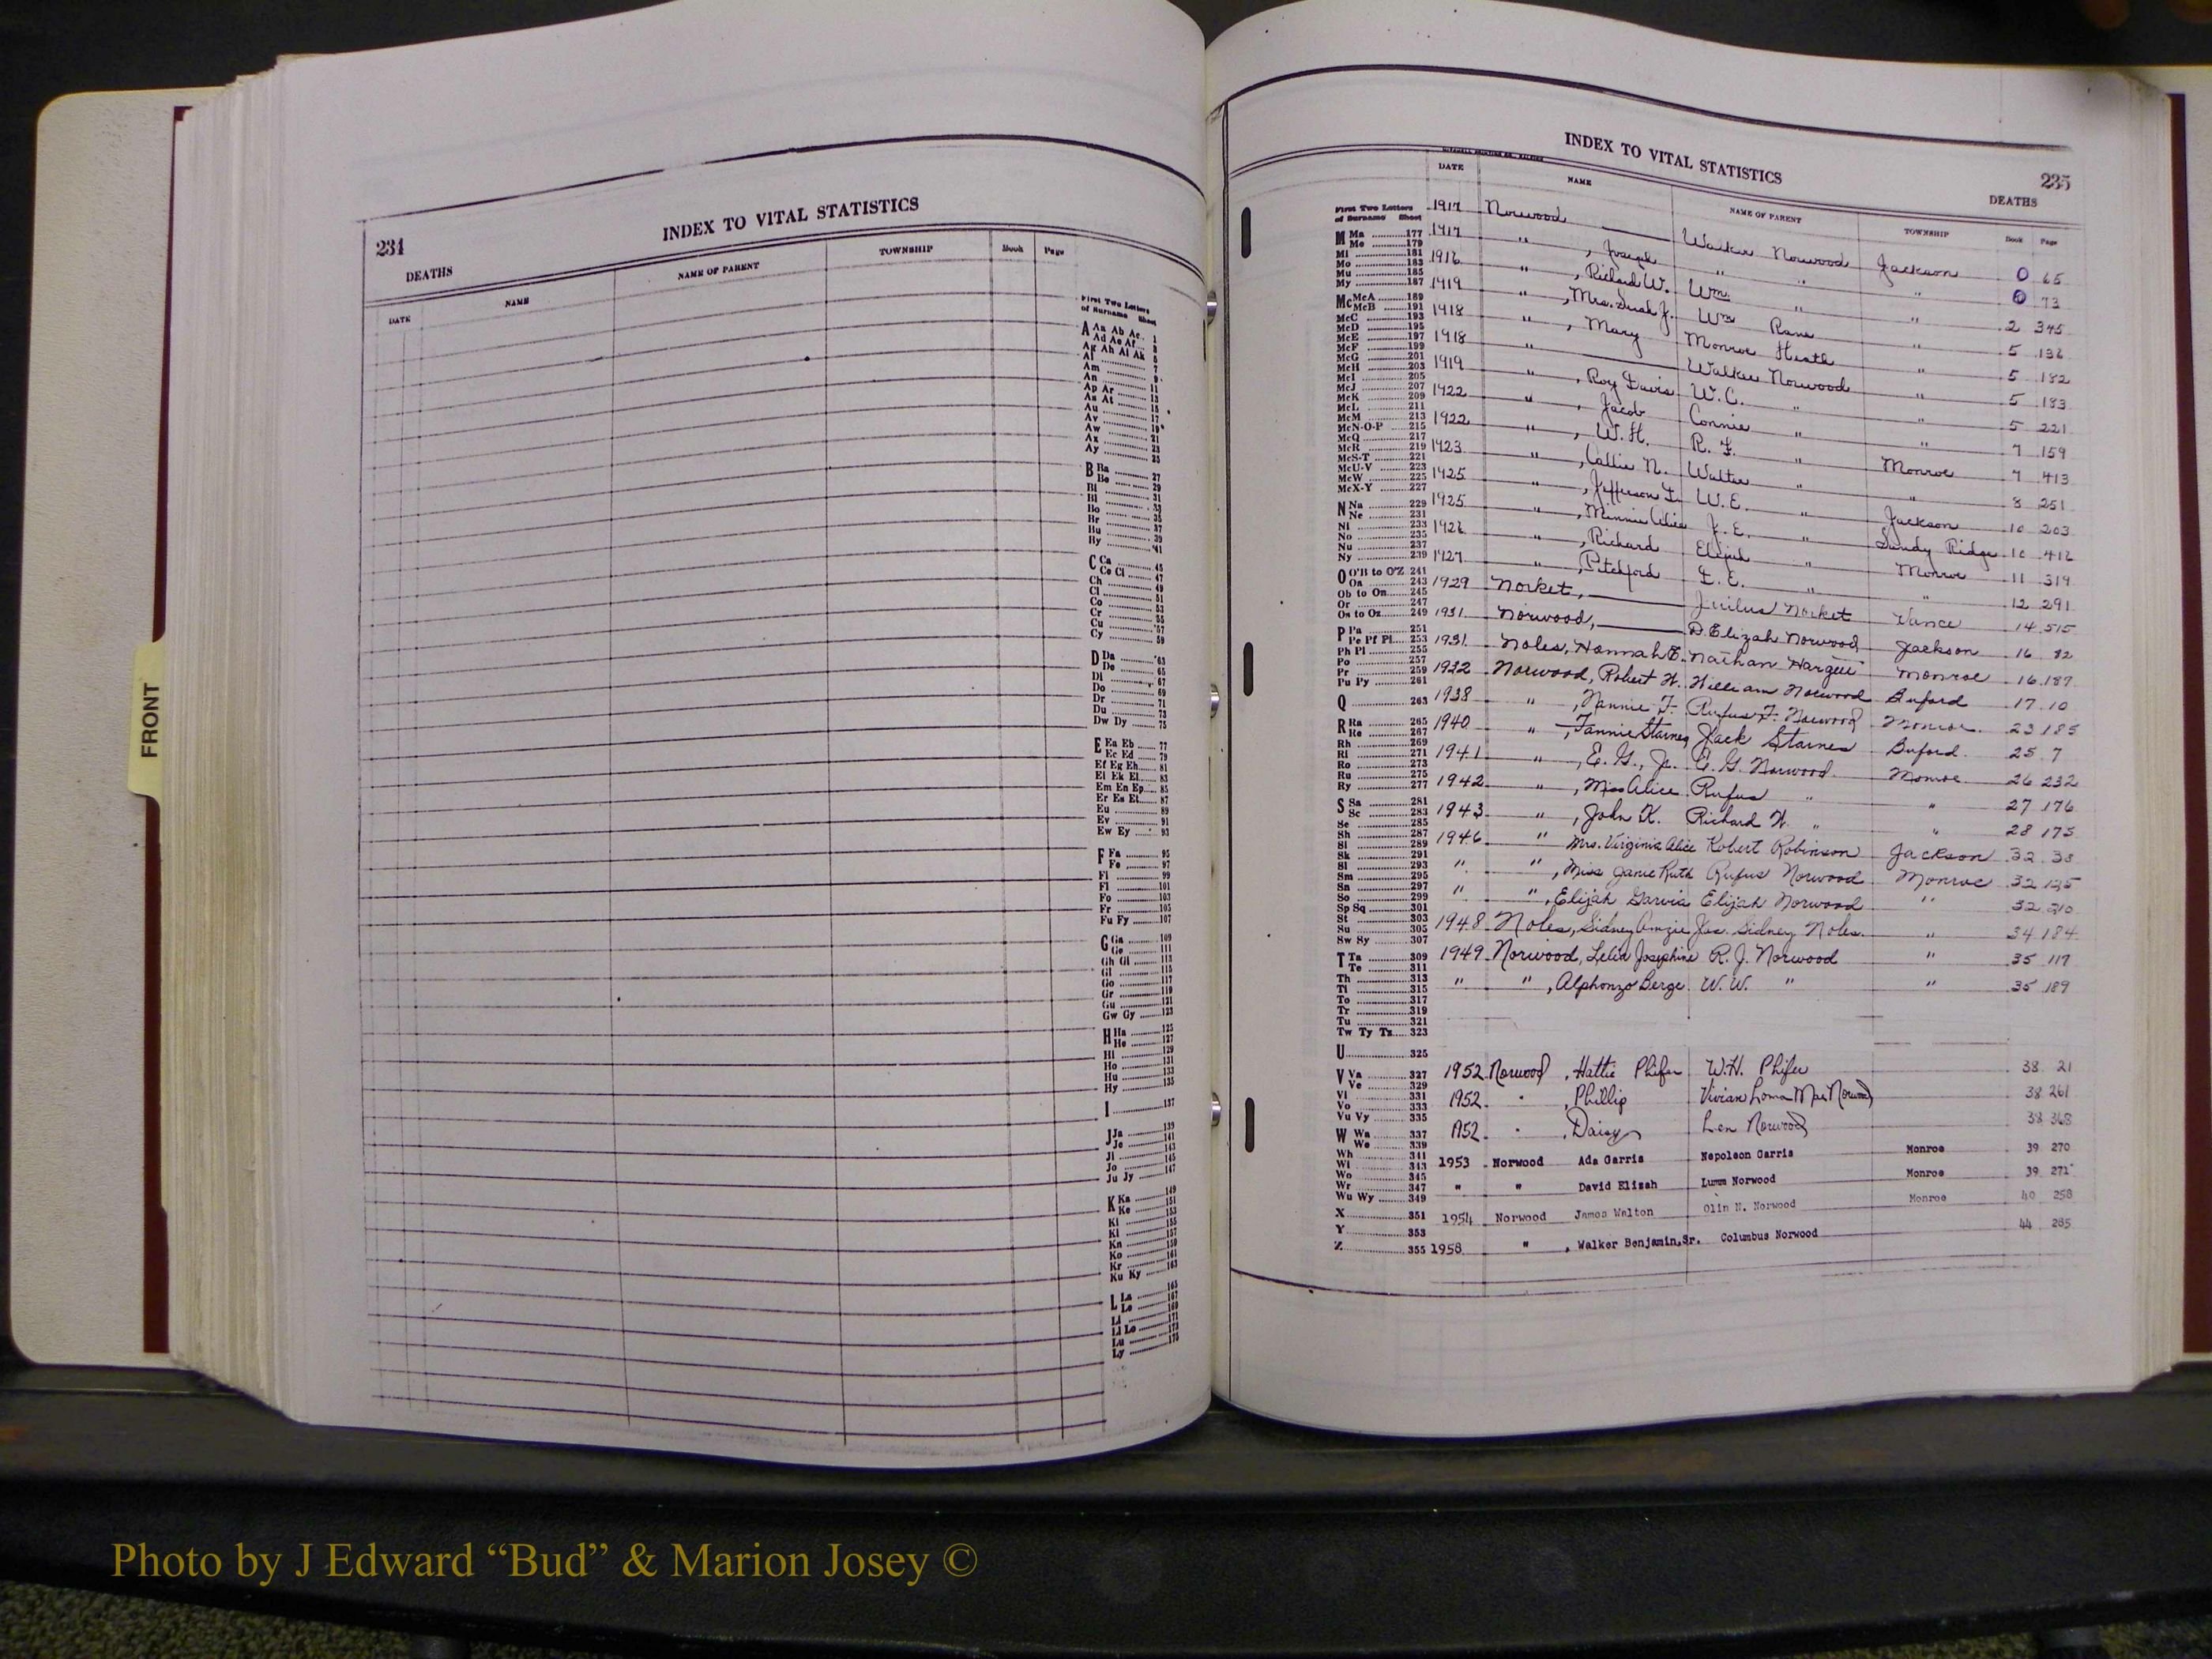 FRONT
234
INDEX TO VITAL STATISTICS
DEATHS
DATE NAME NAME OF PARENT TOWNSHIP Book Page
First Two Letters
of Surname Sheet
A Aa Ab Ac 1
Ad Ae Af 3
Ag Ah Ai Ak 5
Al 7
Am 9
An 11
Ap Ar 13
As At 15
Au 17
Av 19
Aw 21
Ax 23
Ay 25
B Ba 27
Be 29
Bi 31
Bl 33
Bo 35
Br 37
Bu 39
By 41
C Ca 45
Ce Ci 47
Ch 49
Cl 51
Co 53
Cr 55
Cu 57
Cy 59
D Da 63
De 65
Di 67
Do 69
Dr 71
Du 73
Dw Dy 75
E Ea Eb 77
Ec Ed 79
Ef Eg Eh 81
Ei Ek El 83
Em En Ep 85
Er Es Et 87
Eu 89
Ev 91
Ew Ey 93
F Fa 95
Fe 97
Fi 99
Fl 101
Fo 103
Fr 105
Fu Fy 107
G Ga 109
Ge 111
Gh Gi 113
Gl 115
Go 117
Gr 119
Gu 121
Gw Gy 123
H Ha 125
He 127
Hi 129
Ho 131
Hu 133
Hy 135
I 137
J Ja 139
Je 141
Ji 143
Jo 145
Ju Jy 147
K Ka 149
Ke 151
Kh 153
Ki 155
Kl 157
Kn 159
Ko 161
Kr
Ku Ky 163
L La 165
Le 167
Li 169
Ll Lo 171
Lu 173
Ly 175
INDEX TO VITAL STATISTICS
235
DEATHS
DATE NAME NAME OF PARENT TOWNSHIP Book Page
First Two Letters
of Surname Sheet
M Ma 177
Me 179
Mi 181
Mo 183
Mu 185
My 187
Mc McA 189
McB 191
McC 193
McD 195
McE 197
McF 199
McG 201
McH 203
McI 205
McJ 207
McK 209
McL 211
McM 213
McN-O-P 215
McQ 217
McR 219
McS-T 221
McU-V 223
McW 225
McX-Y 227
N Na 229
Ne 231
Ni 233
No 235
Nu 237
Ny 239
O O'B to O'Z 241
Oa 243
Ob to On 245
Or 247
Os to Oz 249
P Pa 251
Pe Pf Pl 253
Ph Pi 255
Po 257
Pr 259
Pu Py 261
Q 263
R Ra 265
Re 267
Rh 269
Ri 271
Ro 273
Ru 275
Ry 277
S Sa 281
Sc 283
Se 285
Sh 287
Si 289
Sk 291
Sl 293
Sm 295
Sn 297
So 299
Sp Sq 301
St 303
Su 305
Sw Sy 307
T Ta 309
Te 311
Th 313
Ti 315
To 317
Tr 319
Tu 321
Tw Ty Tz 323
U 325
V Va 327
Ve 329
Vi 331
Vo 333
Vu Vy 335
W Wa 337
We 339
Wh 341
Wi 343
Wo 345
Wr 347
Wu Wy 349
X 351
Y 353
Z 355
1917 Norwood Walker Norwood Jackson 0 65
1917 " , Joseph " " " 0 73
1916 " , Richard W. Wm. " " 2 345
1919 " , Mrs. Sarah J. Wm Rane " 5 136
1918 " , Mary Monroe Heath " 5 182
1918 " Walker Norwood " 5 183
1919 " , Roy Davis W. C. " " 5 221
1922 " , Jacob Connie " " 7 159
1922 " , W. H. R. F. " Monroe 7 413
1923 " , Callie N. Walter " " 8 251
1925 " , Jefferson L. W. E. " Jackson 10 203
1925 " , Minnie Alice J. E. " Sandy Ridge 10 416
1926 " , Richard Elijah " Monroe 11 319
1927 " , Pitchford E. E. " " 12 291
1929 Norket, Juilus Norket Vance 14 515
1931 Norwood, D. Elizah Norwood Jackson 16 82
1931 Noles, Hannah E. Nathan Hargett Monroe 16 187
1932 Norwood, Robert W. William Norwood Buford 17 10
1938 " , Nannie F. Rufus F. Norwood Monroe 23 185
1940 " , Fannie Starnes Jack Starnes Buford 25 7
1941 " , E. G., Jr. E. G. Norwood Monroe 26 232
1942 " , Miss Alice Rufus " " 27 176
1943 " , John K. Richard W. " " 28 175
1946 " Mrs. Virginia Alice Robert Robinson Jackson 32 38
" " , Miss Janie Ruth Rufus Norwood Monroe 32 125
" " , Elijah Garvia Elijah Norwood " 32 210
1948 Noles, Sidney Amzie Jas. Sidney Noles " 34 184
1949 Norwood, Lelia Josephine R. J. Norwood " 35 117
" " , Alphonzo Berge W. W. " " 35 189
1952 Norwood , Hattie Phifer W. H. Phifer 38 21
1952 " , Phillip Vivian Loma Mae Norwood 38 261
1952 " , Daisy Len Norwood 38 368
1953 Norwood Ada Garris Napoleon Garris Monroe 39 270
" " David Elizah Lumm Norwood Monroe 39 271
1954 Norwood James Walton Olin N. Norwood Monroe 40 258
1958 " , Walker Benjamin, Sr. Columbus Norwood 44 285
Photo by J Edward “Bud” & Marion Josey ©